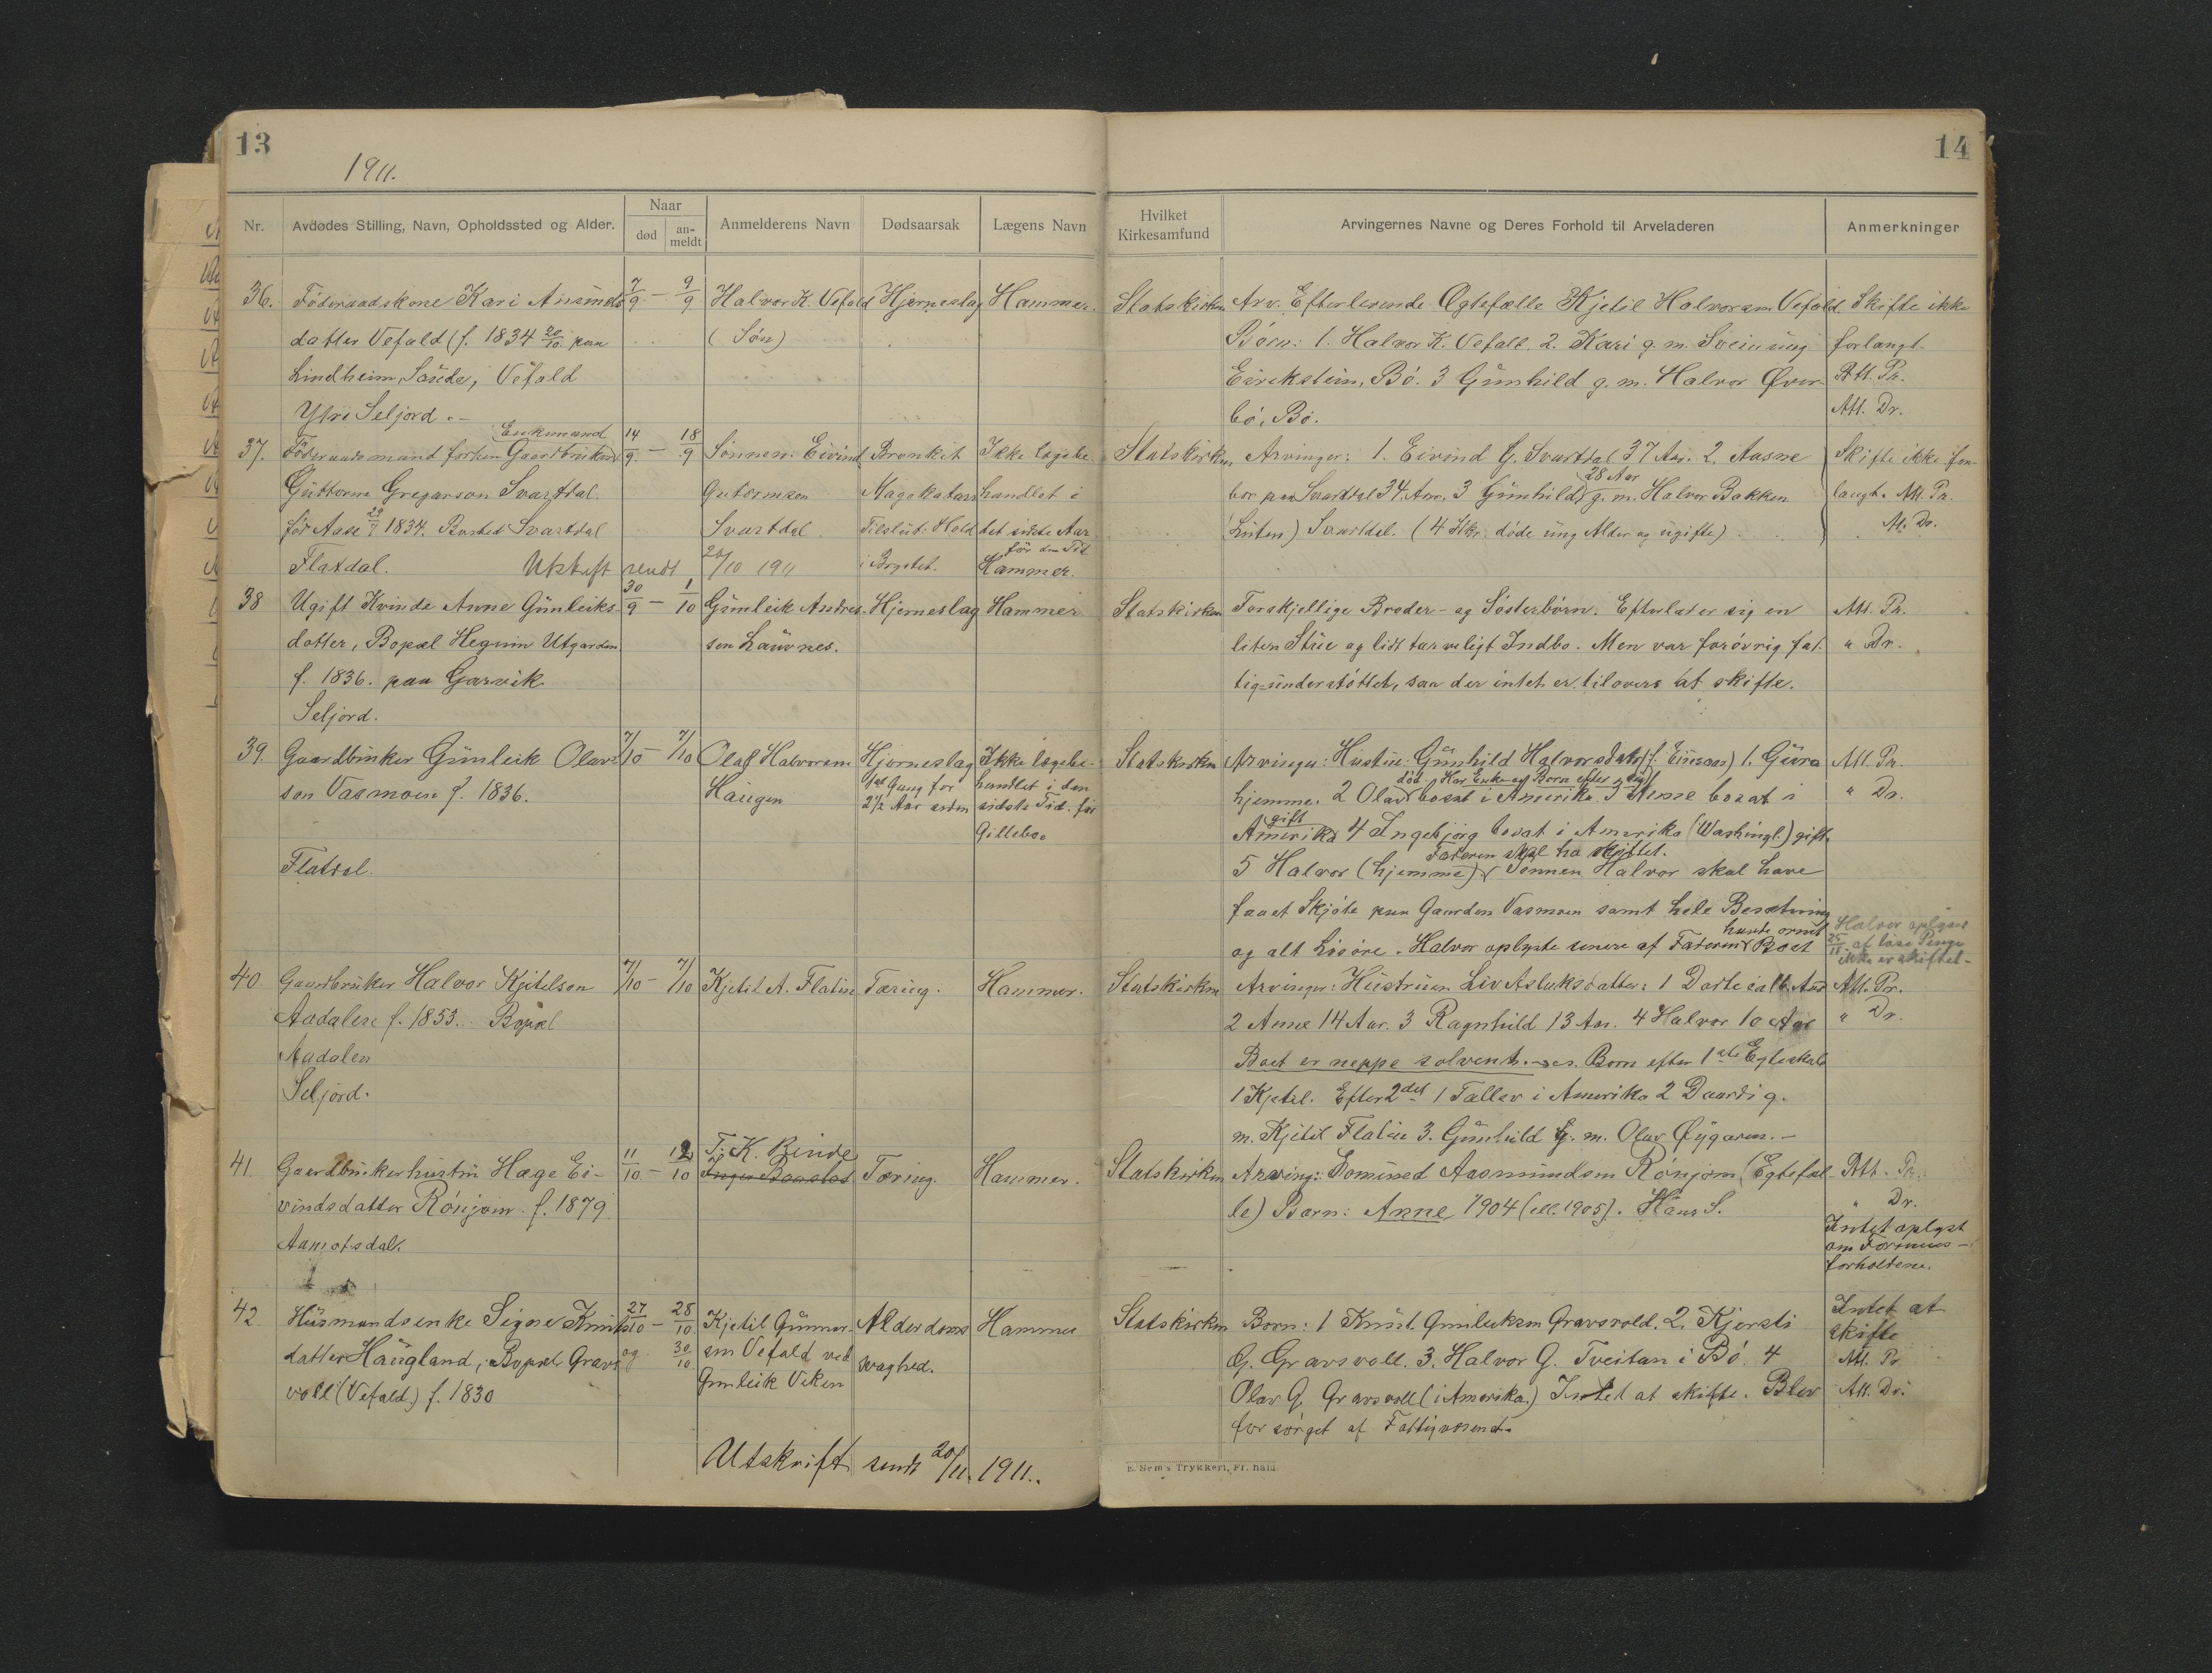 13
1911.
Nr.
Avdødes Stilling, Navn, Opholdssted og Alder.
Naar
død
an-
meldt
Anmelderens Navn
Dødsaarsak
Lægens Navn
36. Föderaadskone Kari Ansmds 7/9 – 9/9 Halvor K. Vefald Hjerneslag Hammer.
datter Vefald (f. 1834 20/10 paa (Sön)
Lindheim, Saude, Vefald
Ytre Seljord. –
Enkemand
37. Föderaadsmand forhen Gaardbruker 14/9 – 18/9 Sönnen: Eivind Bronkit Ikke lægebe-
Guttorm Gregarson Svartdal Gutormson Magekatarr handlet i
för Aase 29/7 1834. Bosted Svartdal Svartdal Tilslut: Hold det sidste Aar
för den Tid
Flatdal. Utskrift sendt 20/10 1911 i Brystet. Hammer.
38 Ugift Kvinde Anne Gunleiks- 30/9 – 1/10 Gunleik Andres- Hjerneslag Hammer
datter, Bopæl Hegnin Utgarden son Laüvnes.
f. 1836. paa Garvik
Seljord.
39. Gaardbruker Gunleik Olav- 7/10 – 7/10 Olaf Halvorsen Hjerneslag Ikke lægebe-
son Vasmoen f. 1836. Haugen 1ste Gang for 2 1/2 Aar siden handlet i den sidste Tid. för
Gillebo.
Flatdal.
40. Gaardbruker Halvor Kjetelson 7/10 – 7/10 Kjetil A. Flatin Tæring. Hammer.
Aadalen f. 1853. Bopæl
Aadalen
Seljord.
41. Gaardbrukerhustru Hæge Ei- 11/10 – 12/10 T. K. Binde Tæring. Hammer.
vindsdatter Rönjom f. 1879
Aamotsdal.
42. Husmandsenke Signe Knuts 27/10 – 28/10 Kjetil Gunnar- Alderdoms Hammer
datter Haugland, Bopæl Gravs og 30/10 son Vefald ved svaghed.
voll (Vefald.) f. 1830 Gunleik Viken
Utskrift sendt 20/11. 1911.
14
Hvilket
Kirkesamfund
Arvingernes Navne og Deres Forhold til Arveladeren
Anmerkninger
Statskirken Arv. Efterlevende Ægtefælle Kjetil Halvorsen Vefald. Skifte ikke
Börn: 1. Halvor K. Vefald. 2. Kari g. m. Sveinung forlangt.
Eirekstein, Bö. 3 Gunhild g. m. Halvor Över- Att. Pr.
bö, Bö. Att. Dr.
Statskirken Arvinger: 1. Eivind G. Svartdal 37 Aar. 2. Aasne Skifte ikke for-
28 Aar
bor paa Svartdal 34 Aar, 3 Gunhild g. m. Halvor Bakken langt. Att. Pr.
(Luten) Svartdal. (4 Stkr. döde ung Alder og ugifte) At. Dr.
Statskirken Forskjellige Broder- og Sösterbörn. Efterlater sig en Att. Pr.
liten Stue og lidt tarveligt Indbo. Men var forövrig fat- " Dr.
tig-understöttet, saa der intet er tilovers at skifte.
Statskirken Arvinger: Hustru: Gunhild Halvorsdatter 1. Gura Att. Pr.
död. Har Enke og Born efter sig
hjemme. 2 Olav bosat i Amerika 3 Anne bosat i " Dr.
gift
Amerika 4 Ingebjörg bosat i Amerika (Washingt.) gift.
Faderen skal ha skiftet.
5 Halvor (hjemme) Sönnen Halvor skal have
faaet Skjöte paa Gaarden Vasmoen samt hele Besætning
og alt Lösöre. Halvor oplyste senere af Faderens Boet
Halvor oplyser
25/11 af løse Penge
ikke er skiftet –
Statskirken Arvinger: Hustruen Liv Asluksdatter: 1 Dortea Att. Pr.
2 Anne 14 Aar. 3 Ragnhild 13 Aar. 4 Halvor 10 Aar " Dr.
Boet er neppe solvent. Born efter 1ste Egteskab
1 Kjetel. Efter 2det 1 Tallev i Amerika 2 Daardi g.
m. Kjetil Flatin 3. Gunhild g. m. Olav Öygaren. –
Statskirken Arving: Aasmundsen Rönjom (Egtefæl- Att. Pr.
le) Barn: Anne 1904 (ell. 1905). Hans S. " Dr.
Intet oplyst
om Formues-
forholdene.
Statskirken Born: 1 Knut Gunleiksen Gravsvold. 2. Kjersti Intet at
G. Gravsvoll. 3. Halvor G. Tveitan i Bö. 4 skifte
Att. Pr.
Olav G. Gravsvoll (i Amerika.) Intet at skifte. Blev Att. Dr.
forsörget af Fattigvæsenet.
E. Sem's Trykkeri, Fr.hald